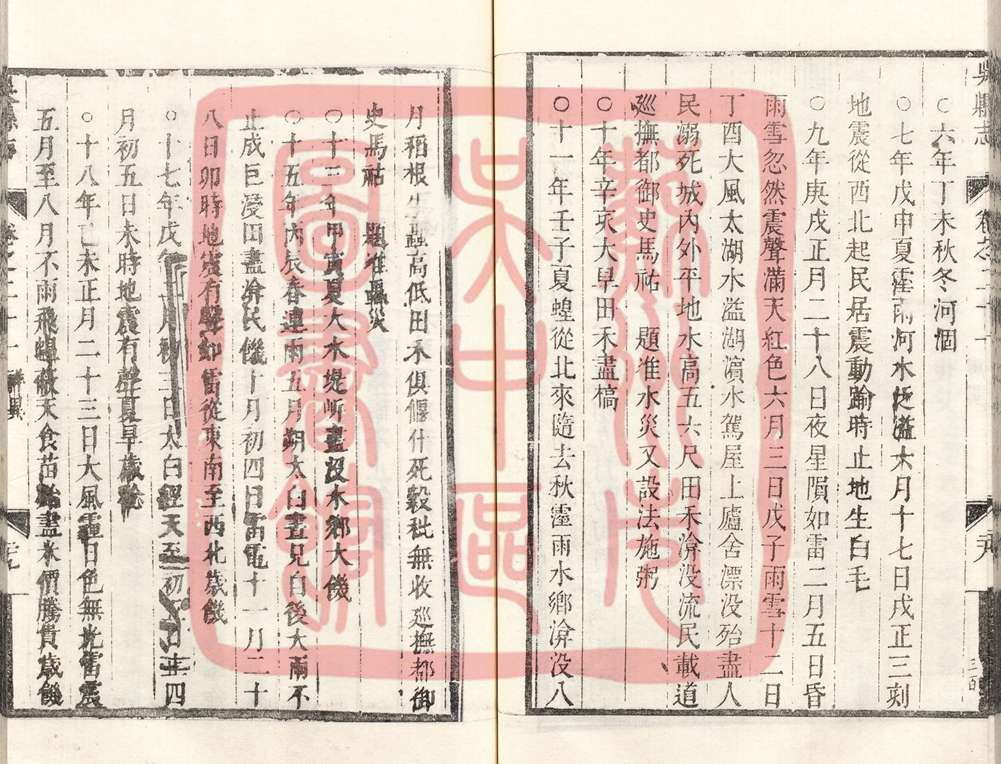 吳縣志
卷之二十一
○六年丁未秋冬河涸
○七年戊申夏霪雨河水泛溢六月十七日戌正三刻
地震從西北起民居震動踰時止地生白毛
○九年庚戌正月二十八日夜星隕如雷二月五日昏
雨雪忽然震聲滿天紅色六月三日戊子雨雪十二日
丁酉大風太湖水溢湖濵水駕屋上廬舍漂没殆盡人
民溺死城内外平地水高五六尺田禾渰没流民載道
廵撫都御史馬祐 題准水災又設法施粥
○十年辛亥大旱田禾盡槁
○十一年壬子夏蝗從北來隨去秋霪雨水鄉渰没八
月稻根生蟲高低田禾俱偃什死穀秕無收廵撫都御
史馬祜 題准蠲災
○十三年甲寅夏大水堤岸盡没水鄉大饑
○十五年丙辰春連雨五月朔太白晝見白後大雨不
止成巨浸田盡渰民饑十月初四日雷電十一月二十
八日卯時地震有聲如雷從東南至西北歲饑
○十七年戊午 月初三日太白經天至初 日止四
月初五日未時地震有聲夏旱歲
○十八年己未正月二十三日大風霾日色無光舊震
五月至八月不雨飛蝗蔽天食苗 盡米價騰貴歲饑
卷之二十一 祥異
蘇州市
吴中區
圖書館